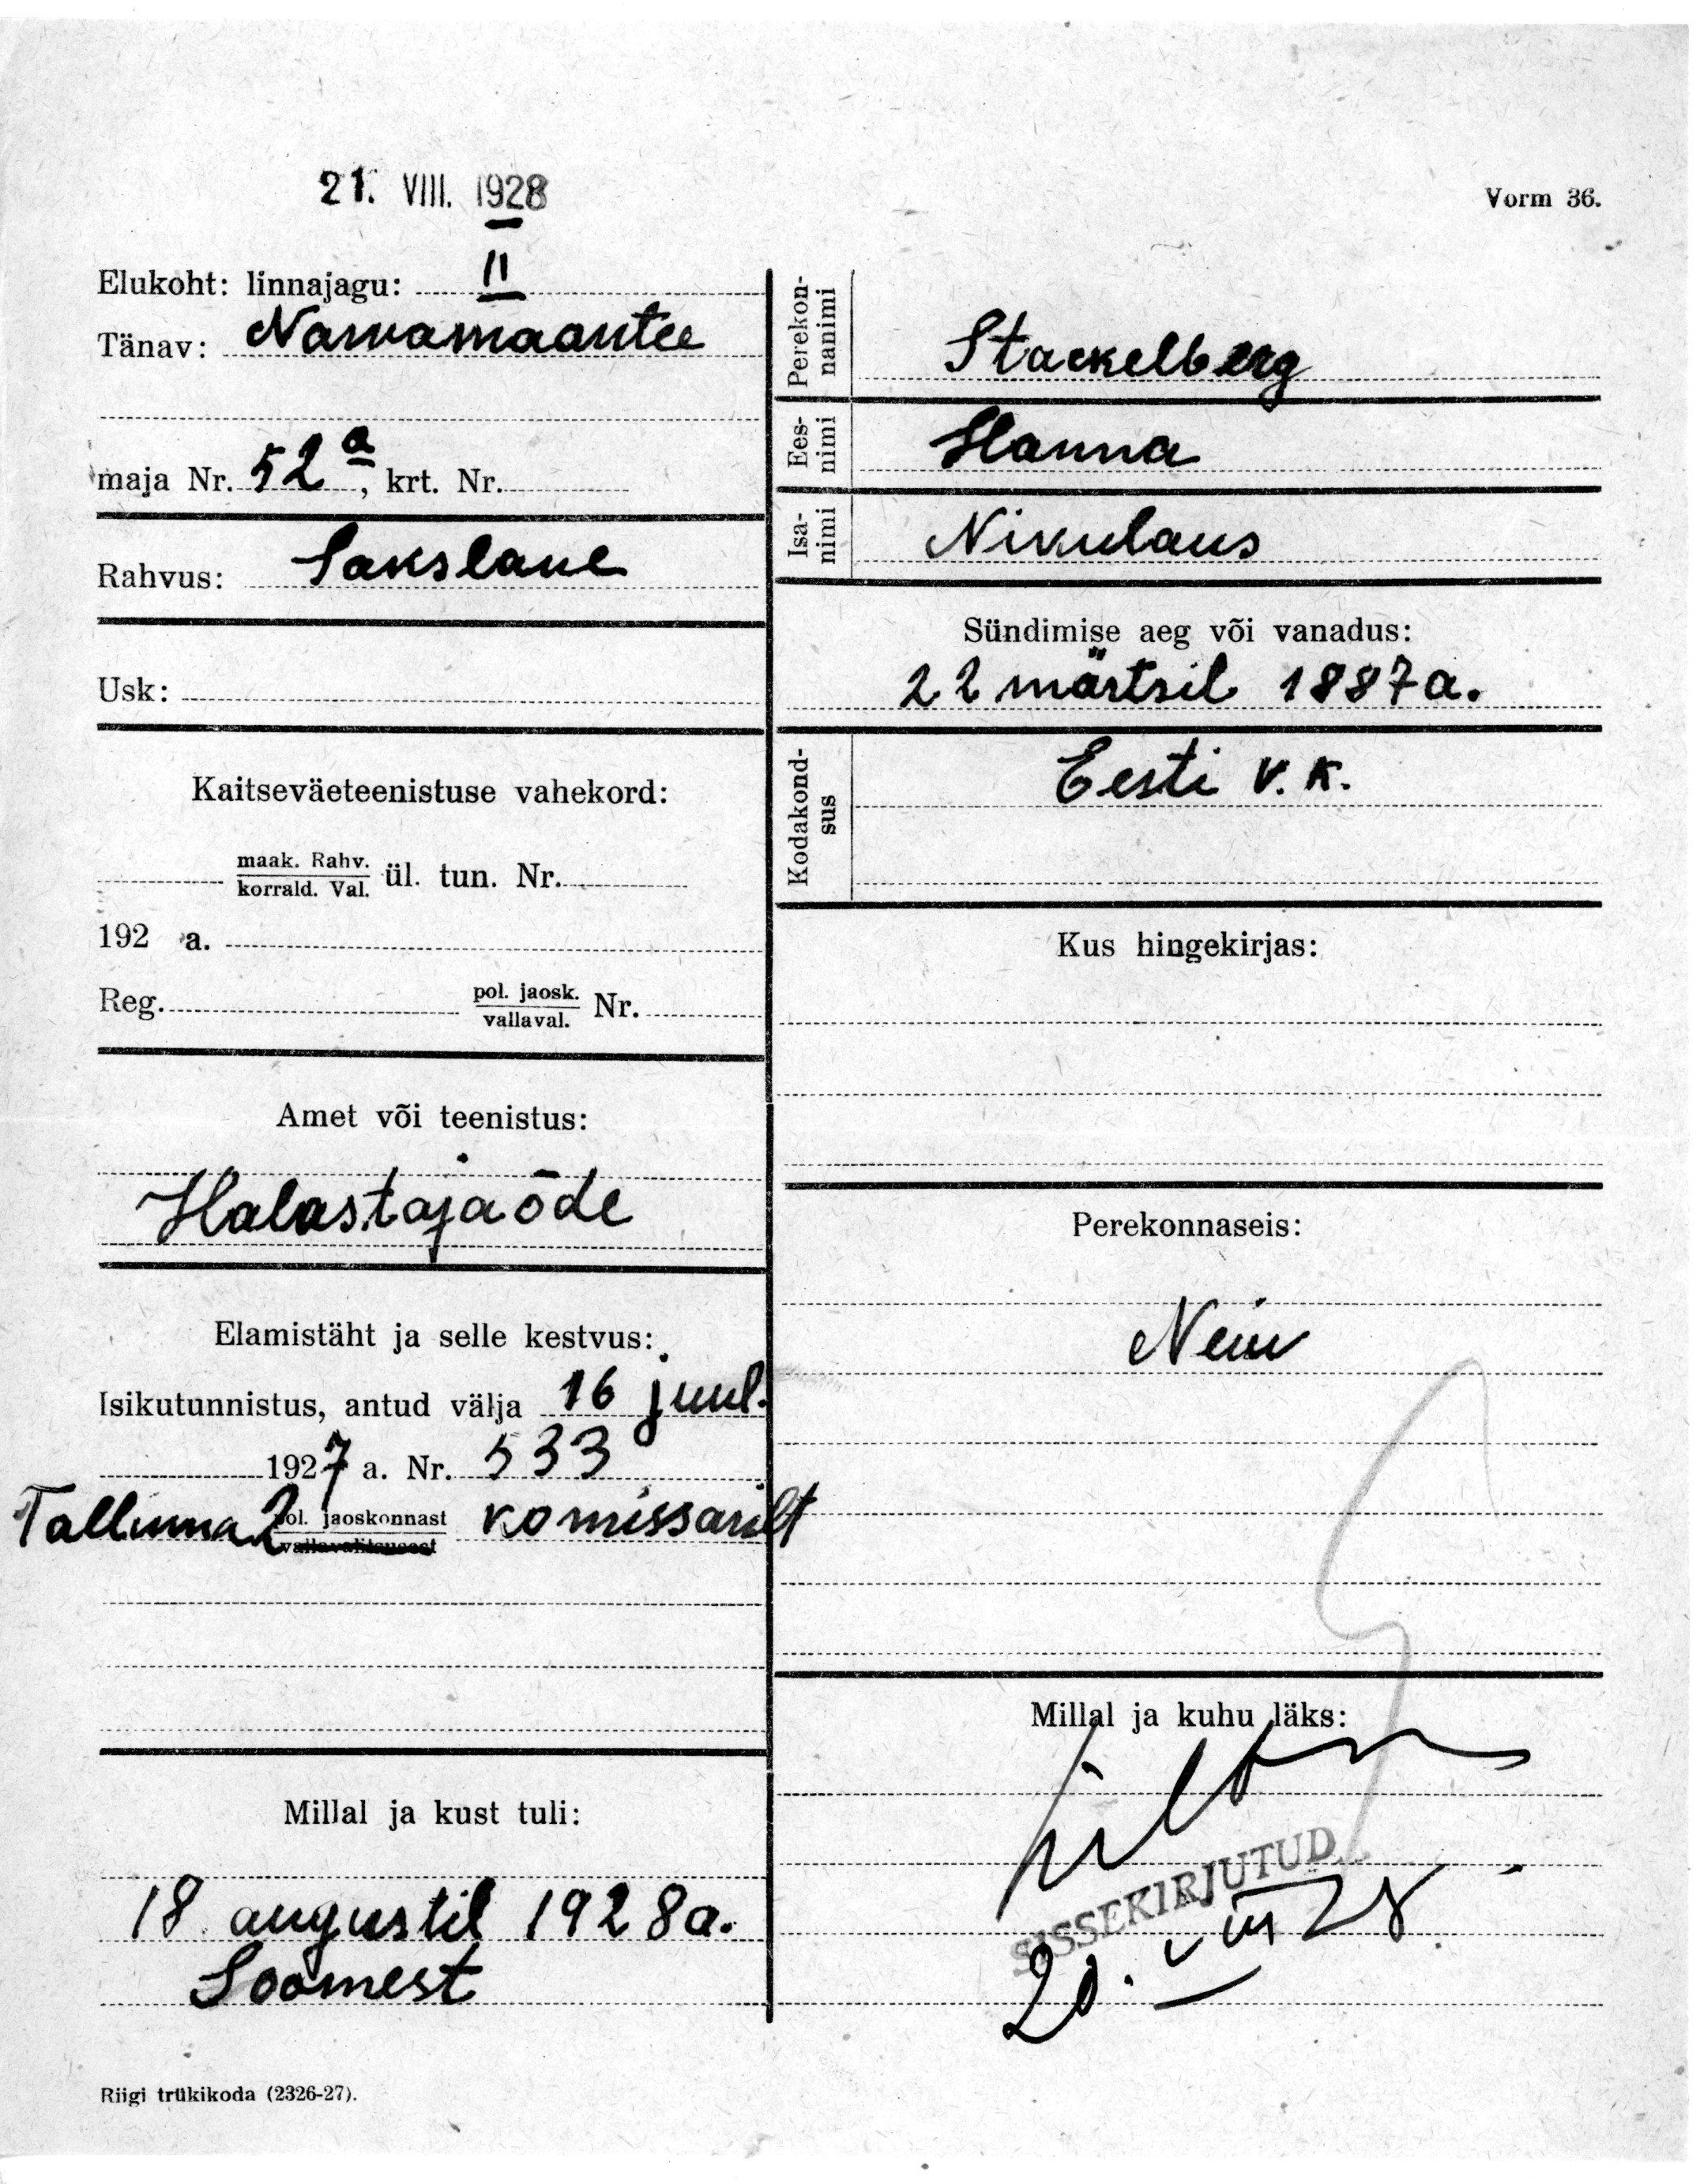 21. VIII. 1928
Vorm 36.
Elukoht: linnajagu: II
Tänav: Narvamaantee
maja Nr. 52a, krt. Nr.
Rahvus: Sakslane
Usk:
Kaitseväeteenistuse vahekord:
maak. Rahv.
korrald. Val. ül. tun. Nr.
192 a.
Reg. pol. jaosk. Nr.
vallaval.
Amet või teenistus:
Halastajaõde
Elamistäht ja selle kestvus:
Isikutunnistus, antud välja 16 juul.
1927 a. Nr. 533
Tallinna 2 pol. jaoskonnast komissarilt
vallavalitsusest
Millal ja kust tuli:
18 augustil 1928 a.
Soomest
Riigi trükikoda (2326-27).
Perekon-
nanimi
Stackelberg
Ees-
nimi
Hanna
Isa-
nimi
Nikulaus
Sündimise aeg või vanadus:
22 märtsil 1887 a.
Kodakond-
sus
Eesti V. K.
Kus hingekirjas:
Perekonnaseis:
Neiu
Millal ja kuhu läks:
SISSEKIRJUTUD
20. VIII 28